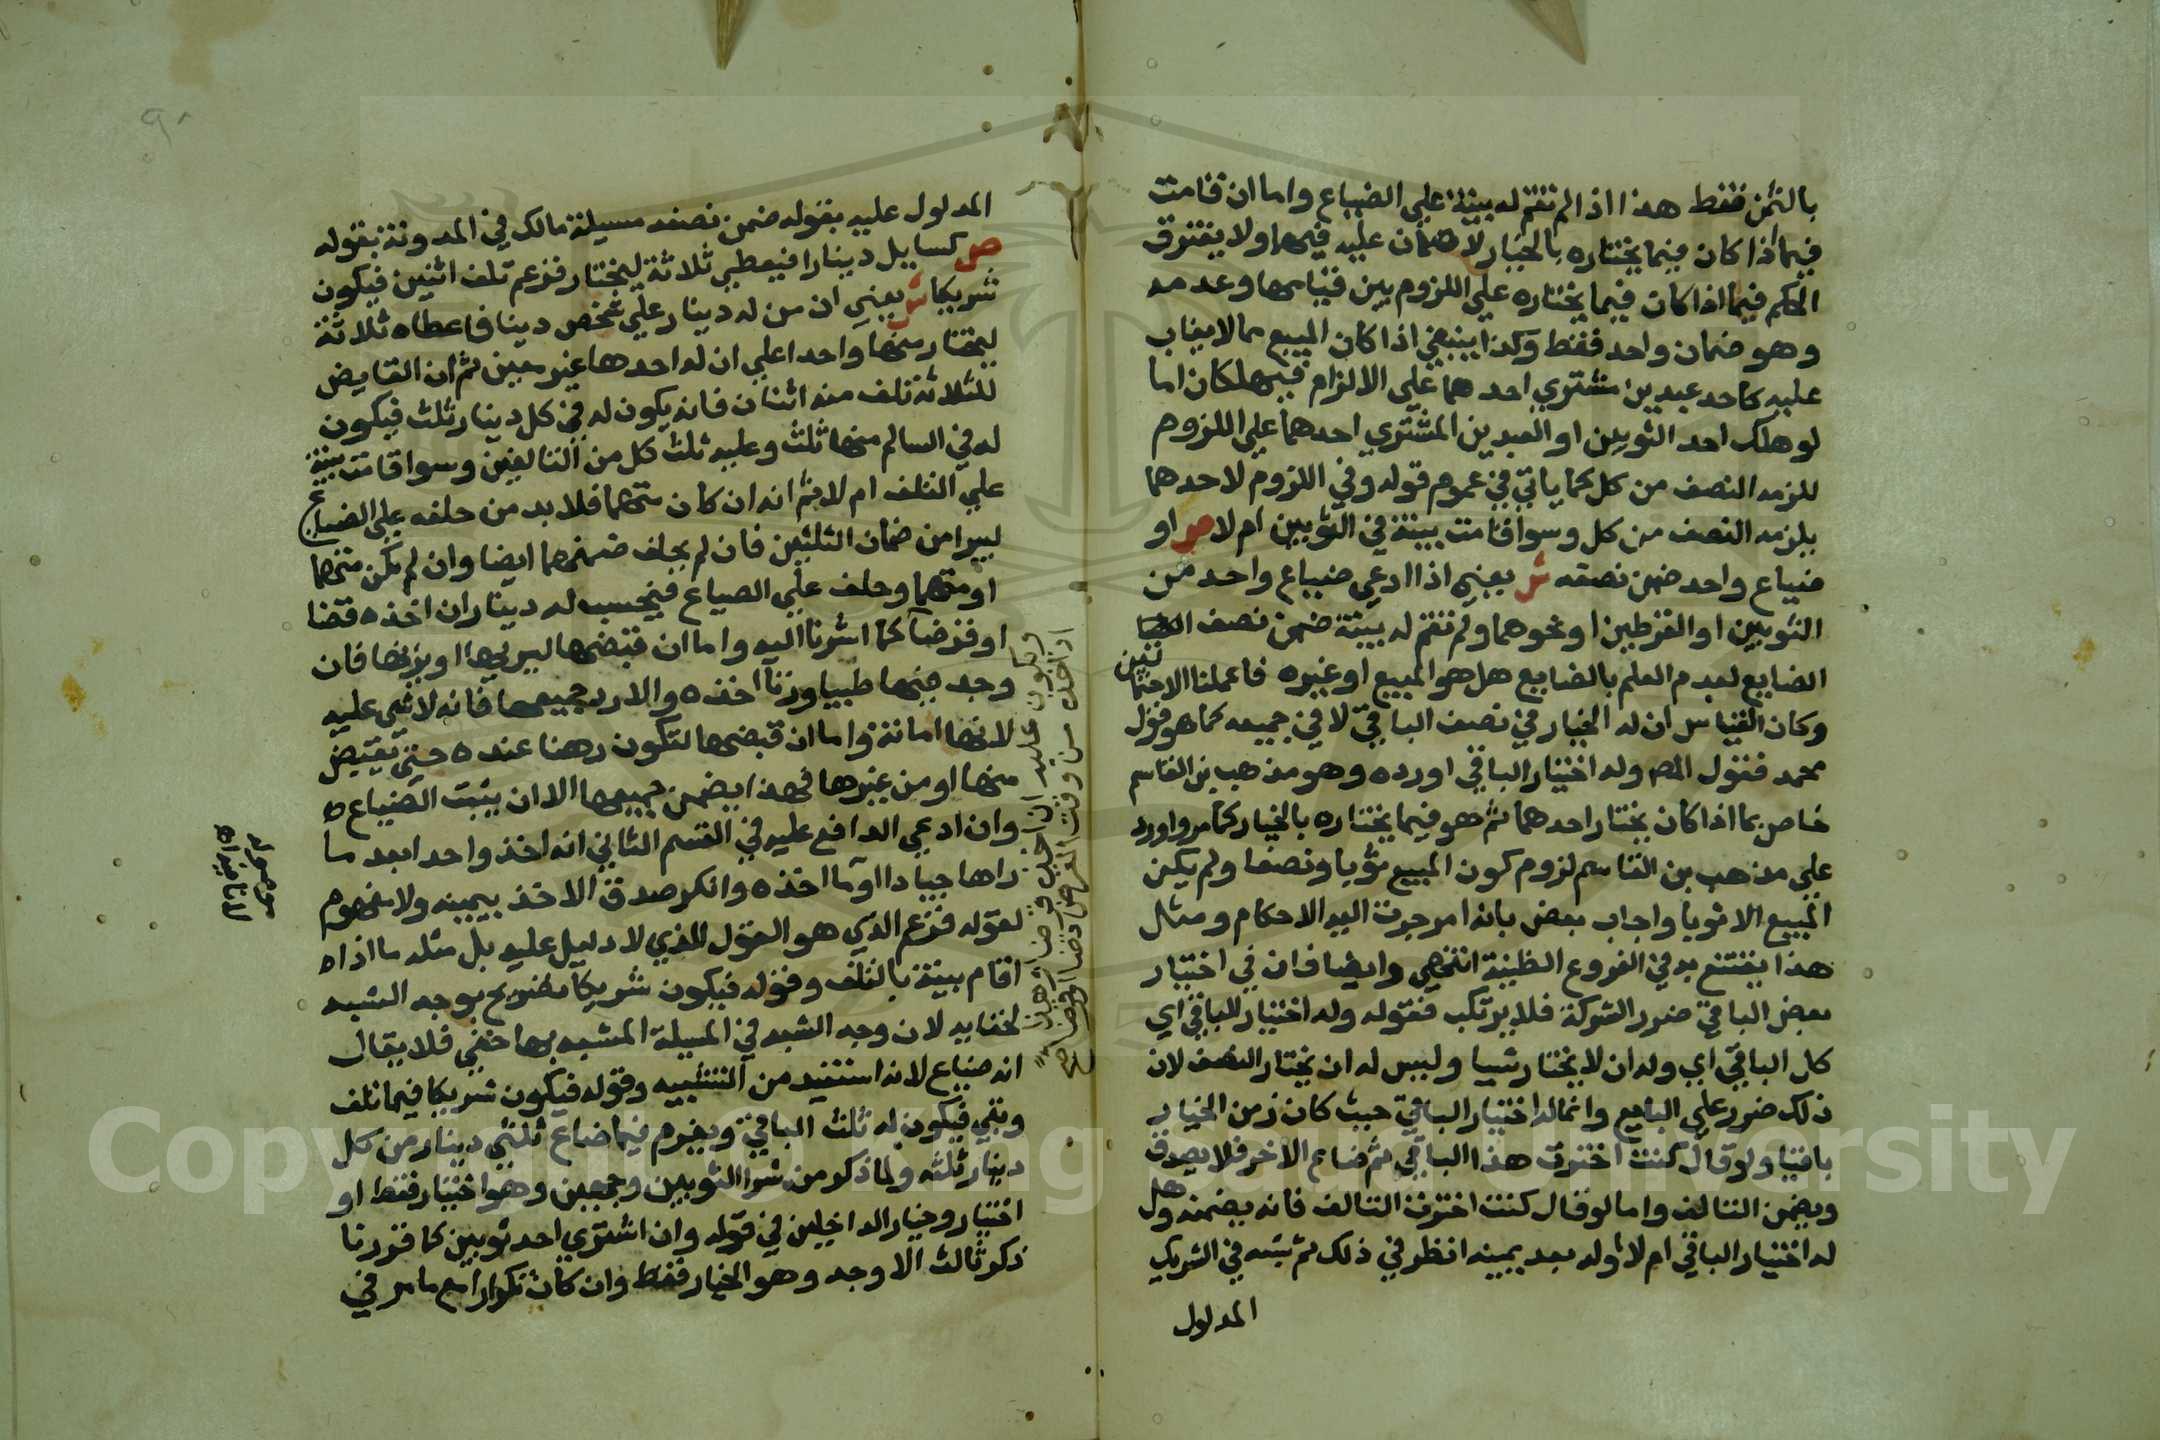 بالثمن فقط هذا اذا لم تقم له بينة علي الضياع واما ان قامت
فيما اذا كان فيما يختاره بالخيار لا ضمان عليه فيهما ولا يفترق
الحكم فيما اذا كان فيما يختاره علي اللزوم بين قيامها وعدمه
وهو ضمان واحد فقط وكذا ينبغي اذا كان المبيع مما لا يغاب
عليه كاحد عبدين مشتري احدهما علي الالزام فيهلكان اما
لو هلك احد الثوبين او العبدين المشتري احدهما علي اللزوم
للزمه النصف من كل كما ياتي في عموم قوله وفي اللزوم لاحدهما
يلزمه النصف من كل وسوا قامت بينة في الثوبين ام لا ص او
ضياع واحد ضمن نصفه ش يعني اذا ادعي ضياع واحد من
الثوبين او القرطين او نحوهما ولم تقم له بينة ضمن نصف
الضايع لعدم العلم بالضايع هل هو المبيع او غيره فاعملنا الاحتمالين
وكان القياس ان له الخيار في نصف الباقي لا في جميعه كما هو قول
محمد فقول المص وله اختيار الباقي اورده وهو مذهب بن القاسم
خاص بما اذا كان يختار احدهما ثم هو فيما يختاره بالخيار كما مر واورد
علي مذهب بن القاسم لزوم كون المبيع ثوبا ونصفا ولم يكن
المبيع الا ثوبا واجاب بعض بانه امر جرت اليه الاحكام ومثل
هذا يقتنع به في الفروع الظنية انتهي وايضا فان في اختيار
بعض الباقي ضرر الشركة فلا يرتكب فقوله وله اختيار الباقي اي
كل الباقي اي وله ان لا يختار شيا وليس له ان يختار النصف لان
ذلك ضرر علي البايع وانما له اختيار الباقي حيث كان زمن الخيار
باقيا ولو قال كنت اخترت هذا الباقي ثم ضاع الاخر فلا يصدق
ويضمن التالف واما لو قال كنت اخترت التالف فانه يضمنه وهل
له اختيار الباقي ام لا وله بعد يمينه انظر في ذلك ثم شبه في الشريك
المدلول
المدلول عليه بقوله ضمن نصفه مسيلة مالك في المدونة بقوله
ص كسايل دينارا فيعطي ثلاثة ليختار فزعم تلف اثنين فيكون
شريكا ش يعني ان من له دينار علي شخص دينا فاعطاه ثلاثة
ليختار منها واحدا علي ان له احدها غير معين ثم ان القابض
للثلاثة تلف منه اثنان فانه يكون له في كل دينار ثلث فيكون
له في السالم منها ثلث وعليه ثلث كل من التالفين وسوا قامت بينة
علي التلف ام لا ثم انه ان كان متهما فلا بد من حلفه علي الضياع
ليبرا من ضمان الثلثين فان لم يحلف ضمنهما ايضا وان لم يكن متهما
او متهما وحلف علي الضياع فيحسب له دينار ان اخذه قضا
او قرضا كما اشرنا اليه واما ان قبضها ليريها او يزنها فان
وجد فيها طيبا وزنا اخذه والا رد جميعها فانه لا شي عليه
لانها امانة واما ان قبضها لتكون رهنا عنده حتي يقبض
منها او من غيرها فهذا يضمن جميعها الا ان يثبت الضياع
وان ادعي الدافع عليه في القسم الثاني انه اخذ واحدا بعد ما
راها جيادا او ما اخذه وانكر صدق الاخذ بيمينه ولا مفهوم
لقوله فزعم الذي هو القول الذي لا دليل عليه بل مثله ما اذا
اقام بينة بالتلف وقوله فيكون شريكا تصريح بوجه الشبه
لخفايه لان وجه الشبه في المسيلة المشبه بها خفي فلا يقال
انه ضياع لانه استفيد من التشبيه وقوله فيكون شريكا فيما تلف
وبقي فيكون له ثلث الباقي ويغرم فيما ضاع ثلثي دينار من كل
دينار ثلثه ولما ذكر من شرا الثوبين وجهين وهو اختيار فقط او
اختيار وخيار الداخلين في قوله وان اشتري احد ثوبين كما قررنا
ذكر ثالث الاوجه وهو الخيار فقط وان كان تكرارا مع ما مر في